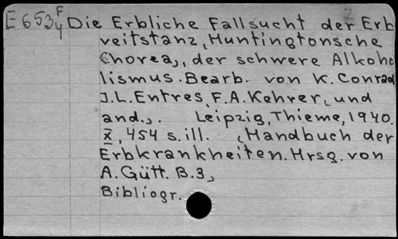 E 653 F/4 Die Erbliche Fallsucht der Erb
veitstanz, Huntingtonsche
Chorea, der schwere Alkoho
lismus. Bearb. von K. Conrad
J.L. Entres, F.A. Kehrer, und
and.,. Leipzig, Thieme, 1940.
X, 454 s. ill. (Handbuch der
Erbkrankheiten. Hrsg. von
A. Gütt. B.3)
Bibliogr.